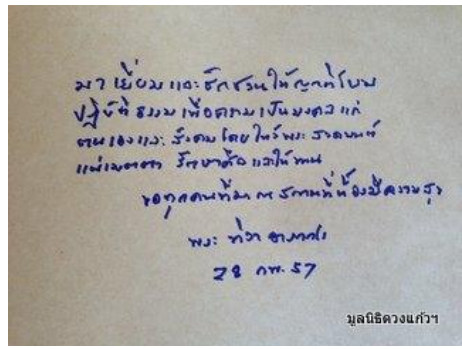 มาเยี่ยมและชักชวนให้ญาติโยม
ปฏิบัติธรรมเพื่อความเป็นมงคลแก่
ตนเองและสังคมโดยไหว้พระ สวดมนต์
แผ่เมตตา รักษาศีล และให้ทาน
ขอทุกคนที่มา ณ สถานที่นี้จงมีความสุข
พระ ทิวา อาภากโร
28 กพ. 57
มูลนิธิดวงแก้วฯ